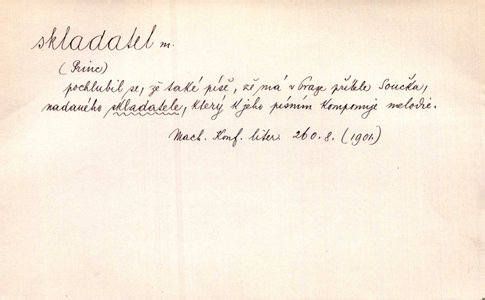 skladatel m.
(Princ)
pochlubil se, že také píše, že má v Praze přítele Součka,
nadaného skladatele, který k jeho písním komponuje melodie.
Mach. Konf. liter. 260. 8. (1901)